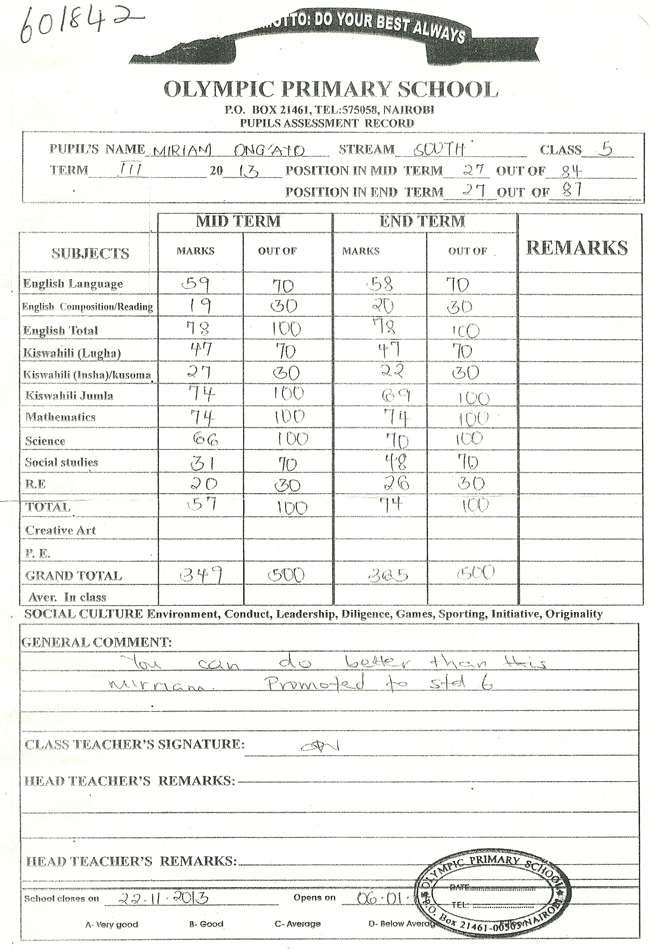 601842
MOTTO: DO YOUR BEST ALWAYS
OLYMPIC PRIMARY SCHOOL
P.O. BOX 21461, TEL:575058, NAIROBI
PUPILS ASSESSMENT RECORD
PUPIL'S NAME MIRIAM ONG'ATO STREAM SOUTH CLASS 5
TERM III 20 13 POSITION IN MID TERM 27 OUT OF 84
POSITION IN END TERM 27 OUT OF 87
MID TERM END TERM
SUBJECTS MARKS OUT OF MARKS OUT OF REMARKS
English Language 59 70 58 70
English Composition/Reading 19 30 20 30
English Total 78 100 78 100
Kiswahili (Lugha) 47 70 47 70
Kiswahili (Insha)/kusoma 27 30 22 30
Kiswahili Jumla 74 100 69 100
Mathematics 74 100 74 100
Science 66 100 70 100
Social studies 31 70 48 70
R.E 20 30 26 30
TOTAL 57 100 74 100
Creative Art
P. E.
GRAND TOTAL 349 500 365 500
Aver. In class
SOCIAL CULTURE Environment, Conduct, Leadership, Diligence, Games, Sporting, Initiative, Originality
GENERAL COMMENT:
You can do better than this
Mirriam. Promoted to std 6
CLASS TEACHER'S SIGNATURE:
HEAD TEACHER'S REMARKS:
HEAD TEACHER'S REMARKS:
School closes on 22.11.2013 Opens on 06.01.
A- Very good B- Good C- Average D- Below Average
OLYMPIC PRIMARY SCHOOL
DATE
TEL:
P.O. Box 21461-00505 NAIROBI